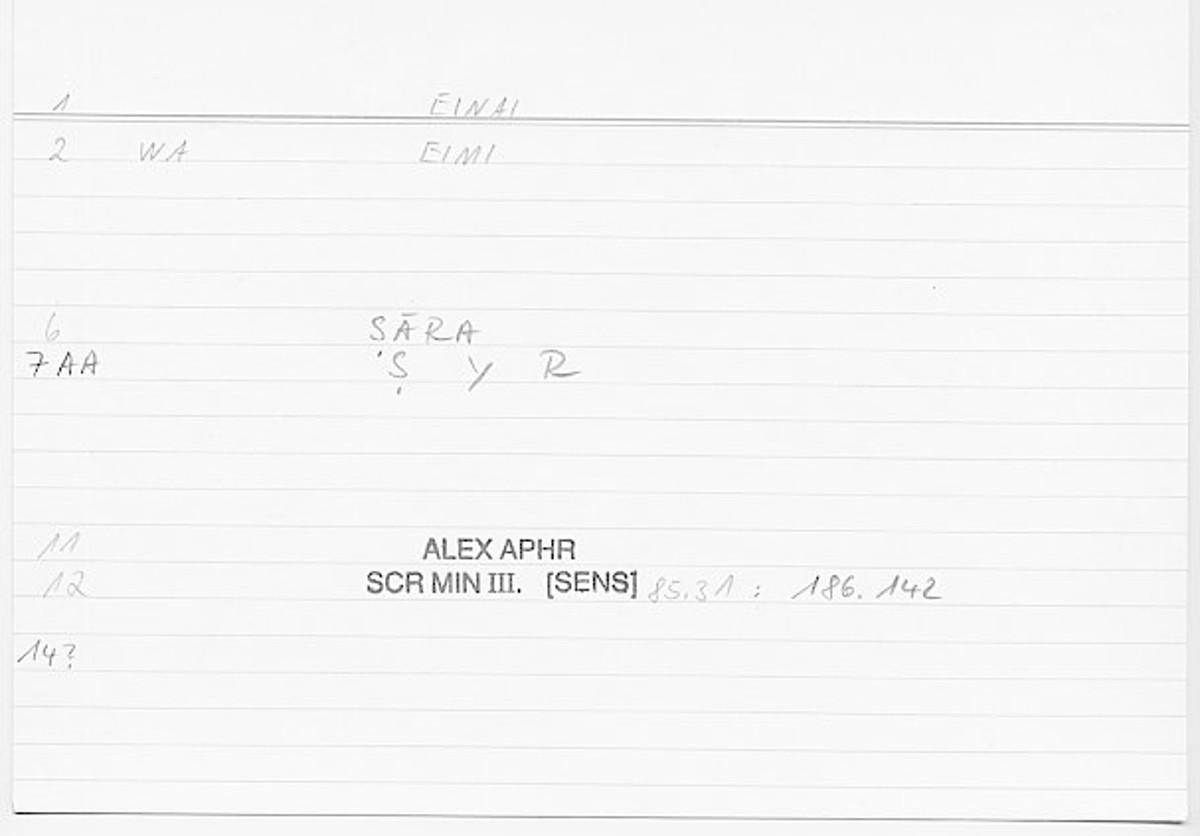 1 EINAI
2 WA EIMI
6 ṢĀRA
7AA Ṣ Y R
11 ALEX APHR
12 SCR MIN III. [SENS] 85.31 : 186.142
14?